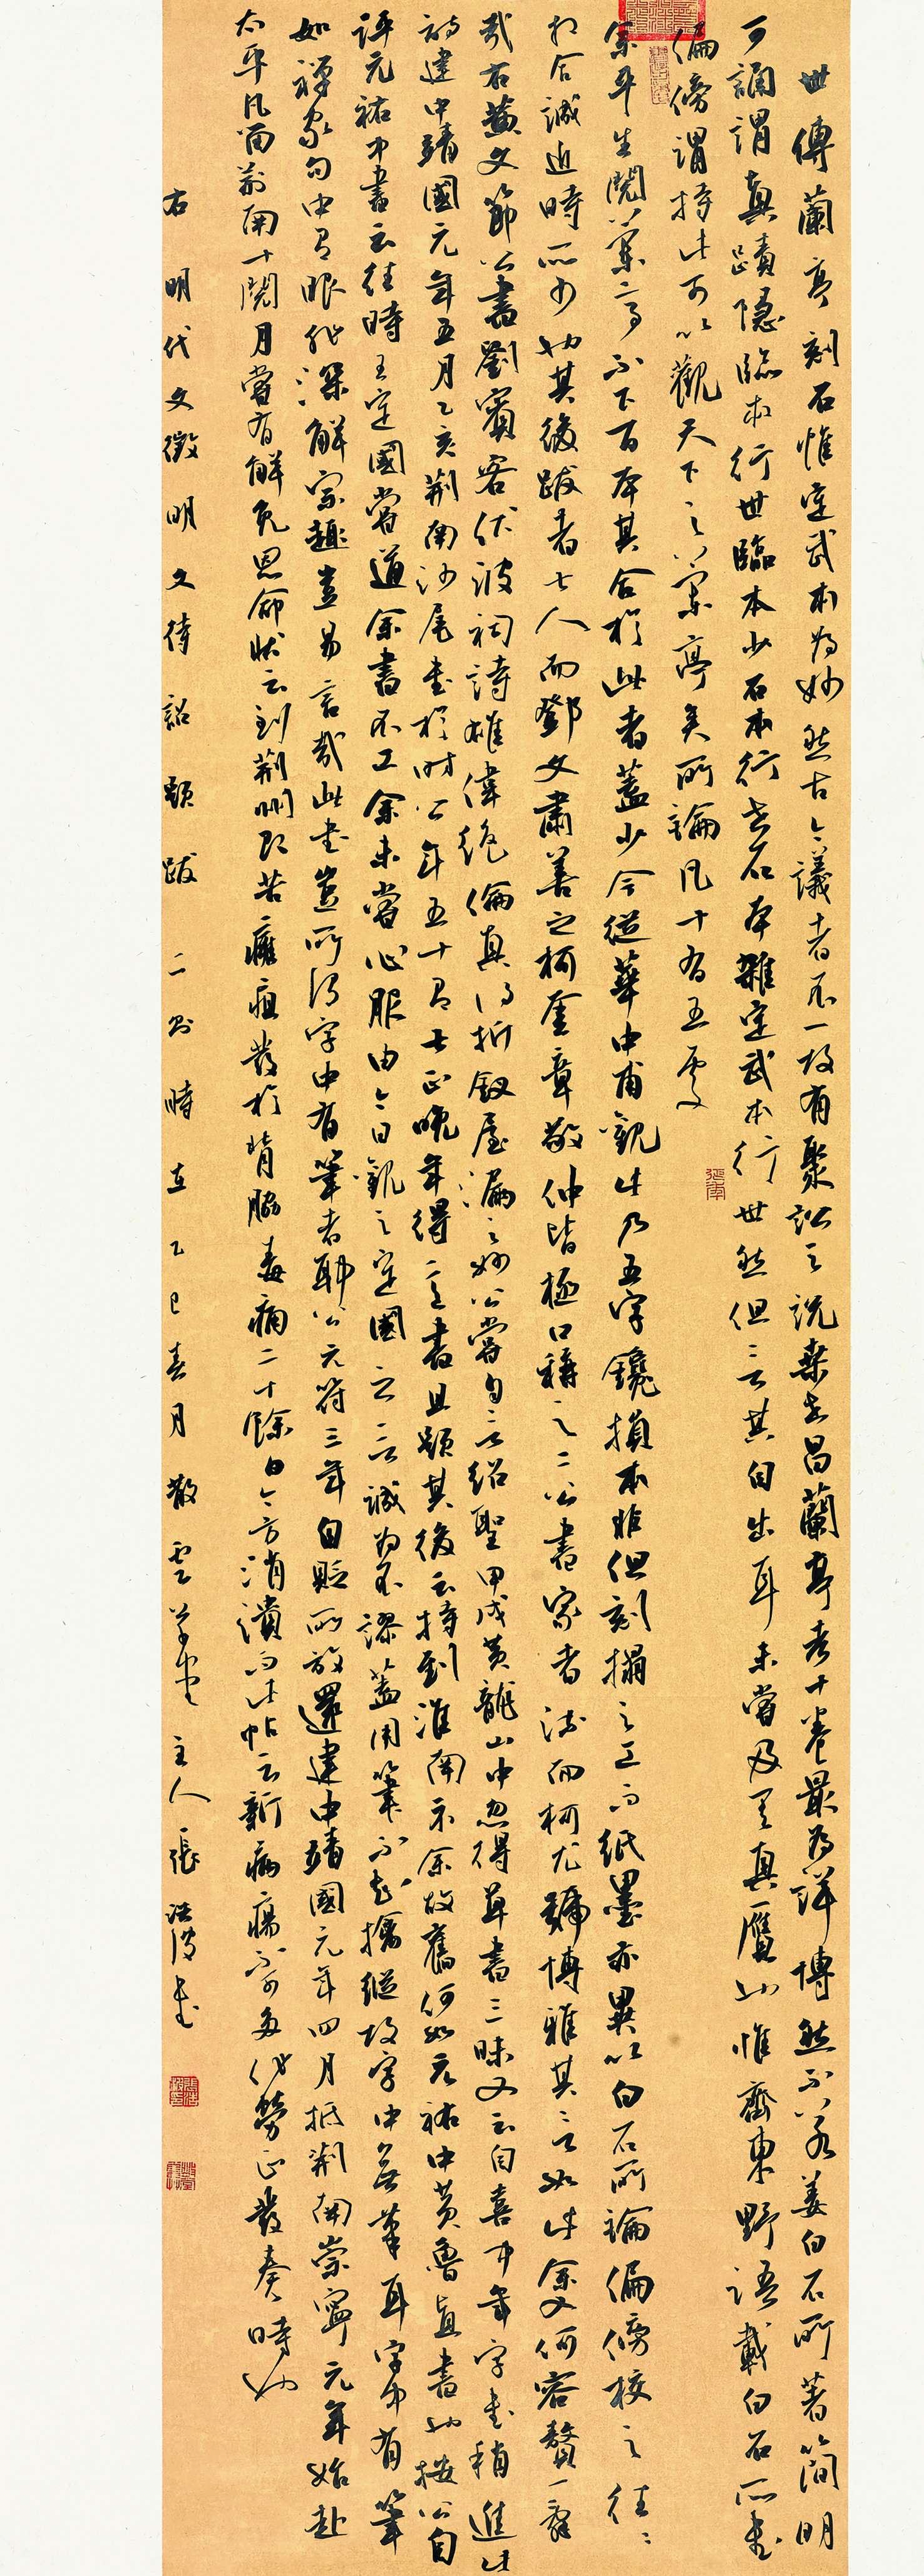 世傳蘭亭刻石惟定武本為妙然古今議者不一故有聚訟之說桑世昌蘭亭考十卷最為詳博然不若姜白石所著簡明
可誦謂真蹟隱臨本行世臨本少石本行世石本雜定武本行世然但云其自出耳未嘗及其真贗也惟齊東野語載白石所書
偏傍謂持此可以觀天下之蘭亭矣所論凡十有五處
余平生閱蘭亭不下百本其合於此者蓋少今從華中甫觀此乃五字鑱損本非但刻搨之工而紙墨亦異以白石所論偏傍校之往往
相合誠近時所少也其後跋者七人而鄧文肅善之柯奎章敬仲皆極口稱之二公書家者流而柯尤號博雅其言如此余又何容贅一辭
哉右黃文節公書劉賓客伏波祠詩雄偉絕倫真得折釵屋漏之妙公嘗自言紹聖甲戌黃龍山中忽得草書三昧又云自喜中年字書稍進此
詩建中靖國元年五月乙亥荊南沙尾書於時公年五十有七正晚年得意書且題其後云持到淮南示余故舊何如元祐中黃魯直書也按公自
評元祐中書云往時王定國嘗道余書不工余未嘗心服由今日觀之定國之言誠為不謬蓋用筆不知擒縱故字中無筆耳字中有筆
如禪家句中有眼非深解宗趣豈易言哉此書豈所謂字中有筆者耶公元符三年自貶所放還建中靖國元年四月抵荊南崇寧元年始赴
太平凡留荊南十閱月嘗有解免恩命狀云到荊州即苦癰疽發於背脇毒痛二十餘日今方消潰而此帖云新病瘍不可多作勞正發奏時也
右明代文徵明文待詔題跋二則時在乙巳春月散雲草堂主人張